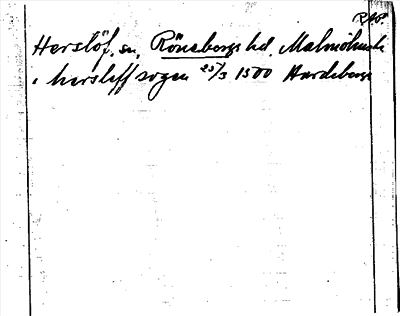 Herslöf, sn, Rönebergs hd, Malmöhus
i hersleff sogen 25/3 1500 Hardeberga